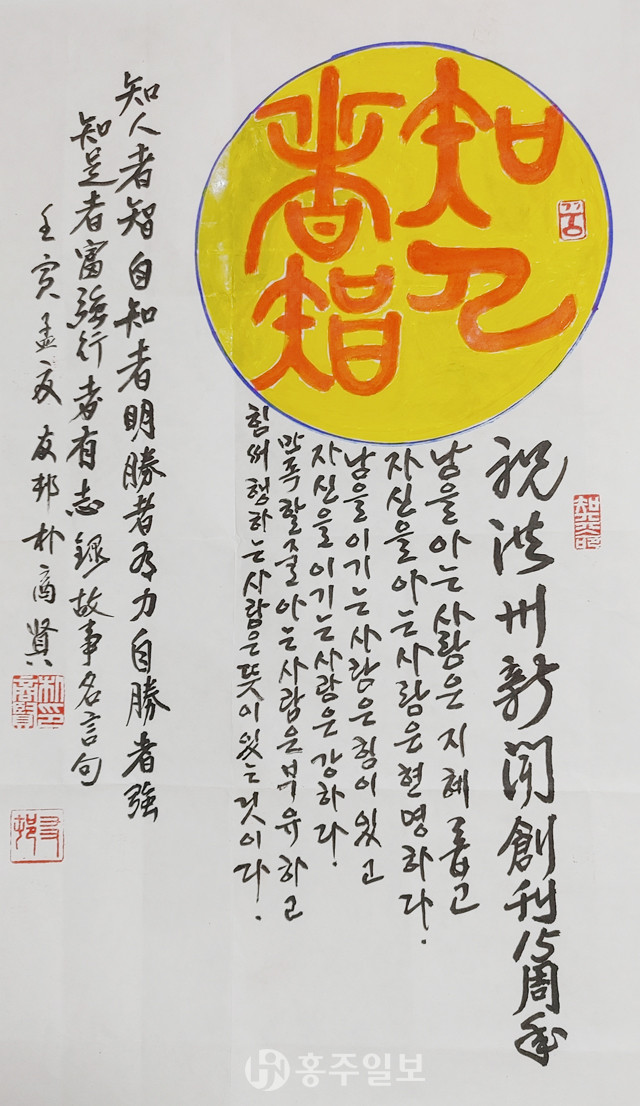 知人
者智
祝洪州新聞創刊15周年
남을 아는 사람은 지혜롭고
자신을 아는 사람은 현명하다.
남을 이기는 사람은 힘이 있고
자신을 이기는 사람은 강하다.
만족할 줄 아는 사람은 부유하고
힘써 행하는 사람은 뜻이 있는 것이다.
知人者智自知者明勝者有力自勝者強
知足者富強行者有志 錄故事名言句
壬寅孟夏友邦朴商賢
홍주일보